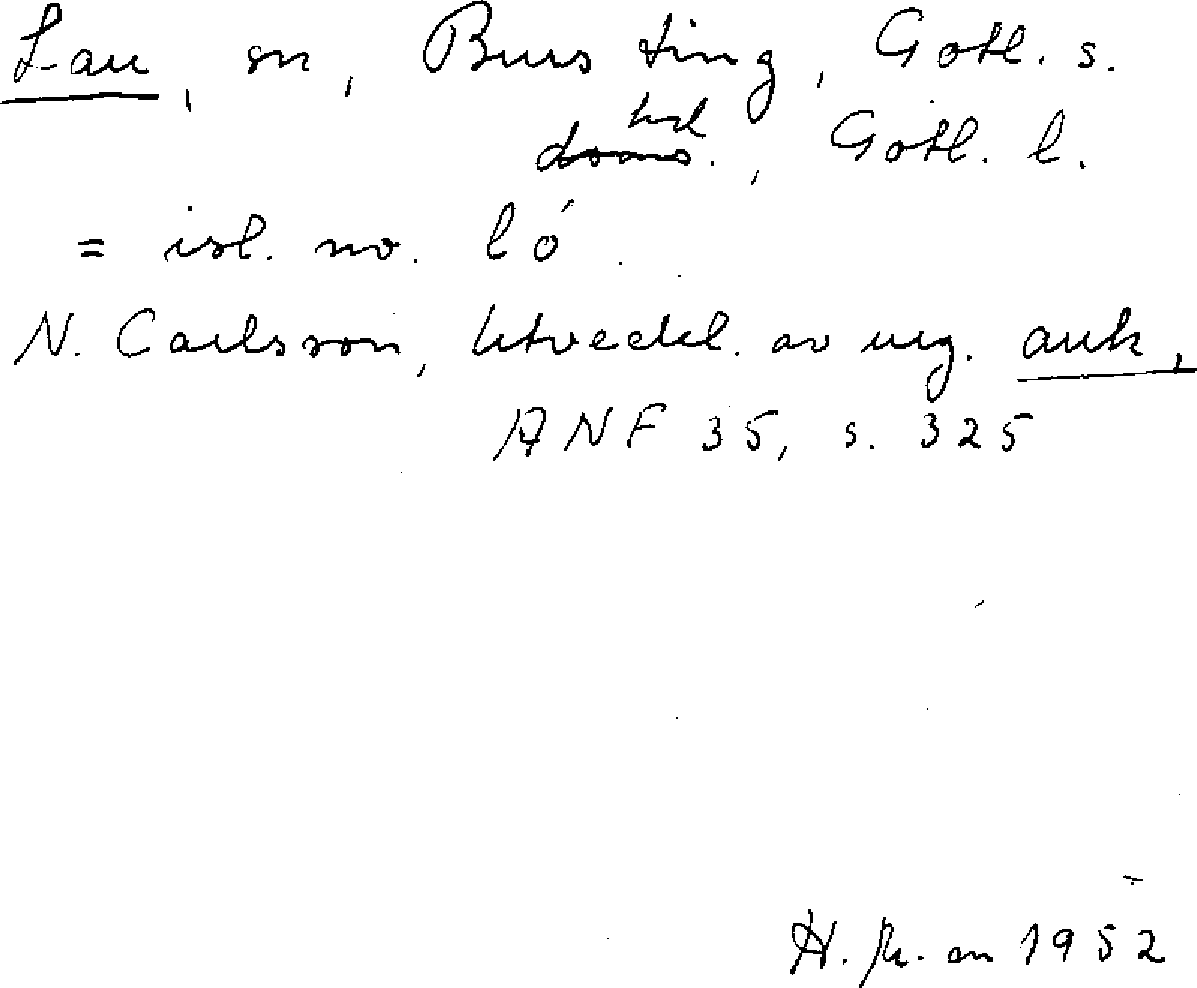 Lau, sn, Burs ting, Gotl. s.
hd., Gotl. l.
= isl. no. ló.
N. Carlsson, Utveckl. av urg. auk,
ANF 35, s. 325
1952